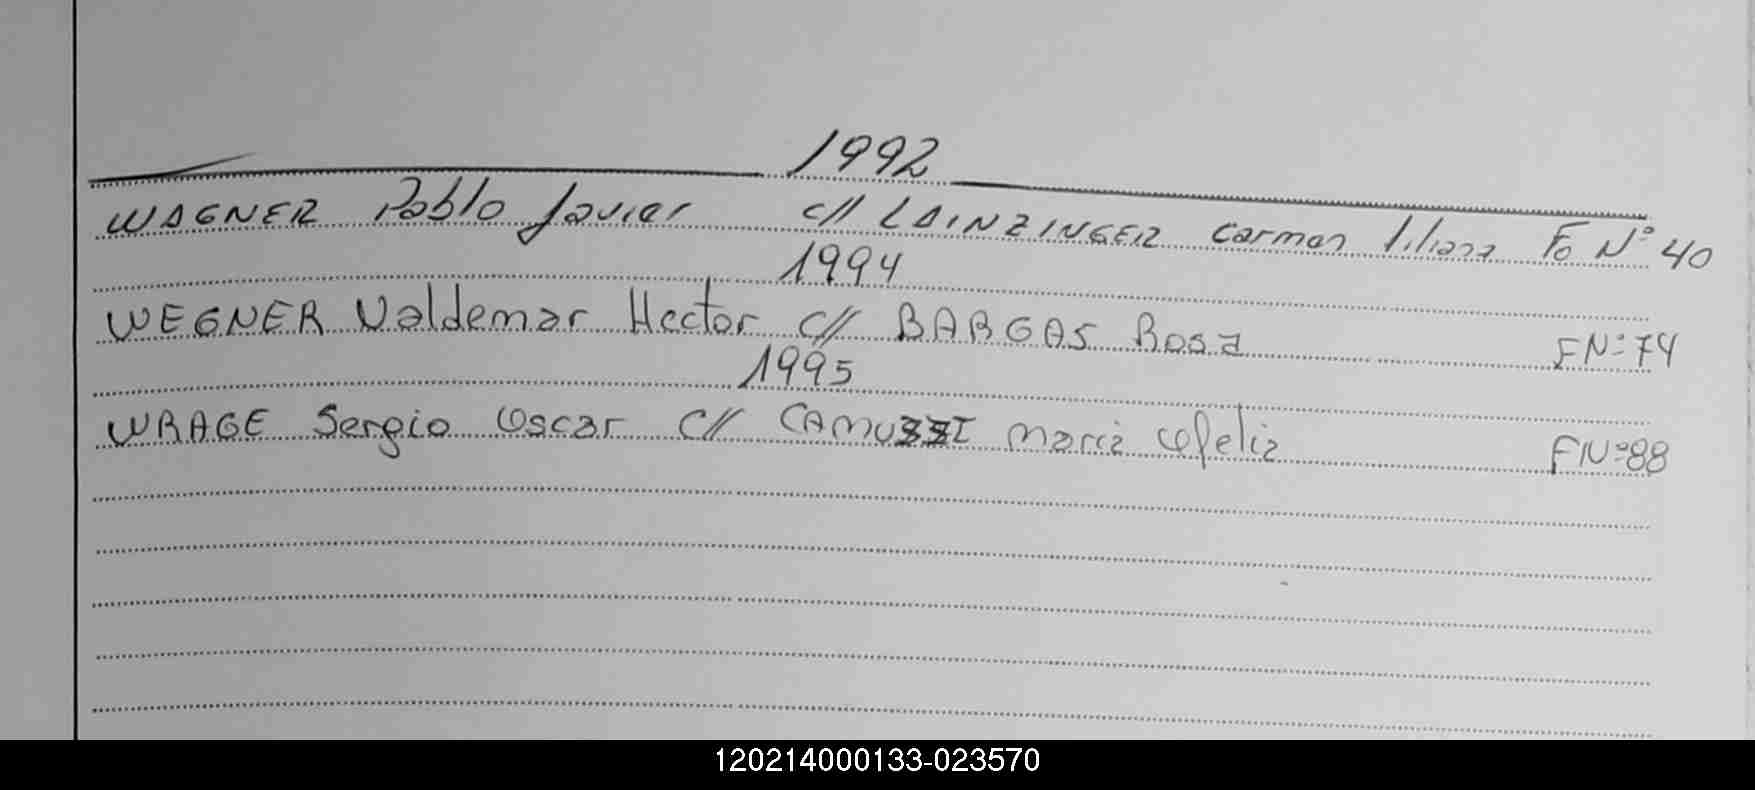 1992
WAGNER Pablo Javier c// LAINZINGER Carmen liliana Fo Nº 40
1994
WEGNER Valdemar Hector c// BARGAS Rosa FNº 74
1995
WRAGE Sergio Oscar c// CAMUZZI Maria Ofelia FNº 88
120214000133-023570